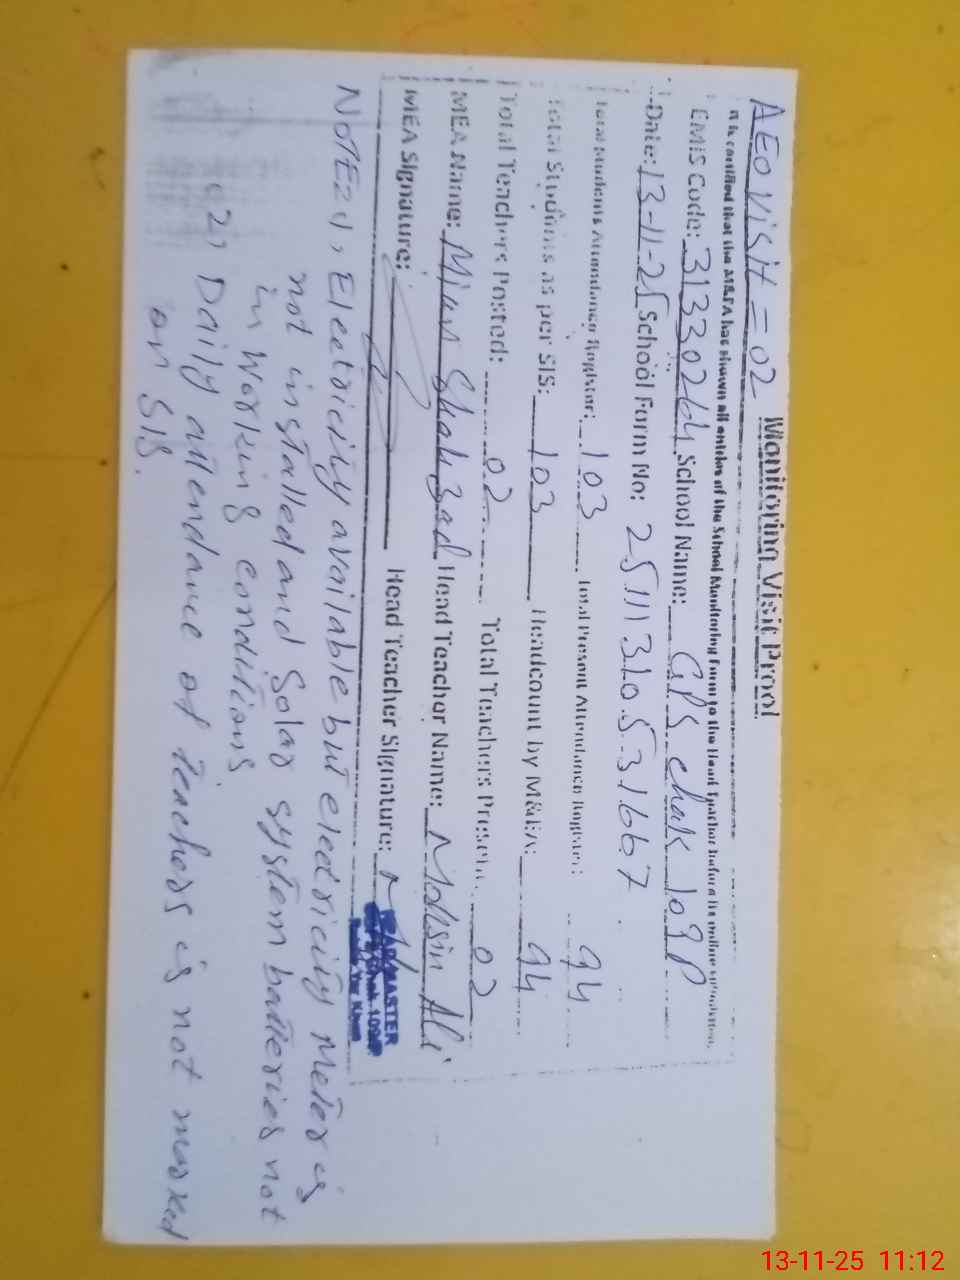 AEO visit = 02 Monitoring Visit Proof
It is certified that the M&EA has shown all entries of the School Monitoring Form to the Head Teacher before its online submission.
EMIS Code: 31330264 School Name: GPS chak 109P
Date: 13-11-25 School Form No:
Total Students Attendance Register: 103 Total Present Attendance Register: 94
Total Students as per SIS: 103 Headcount by M&EA: 94
Total Teachers Posted: 02 Total Teachers Present: 02
MEA Name: Mian Shahzad Head Teacher Name: Mohsin Ali
MEA Signature: Head Teacher Signature:
HEAD MASTER
Chak 109/P
Yar Khan
NOTE= 1, Electricity available but electricity meter is
not installed and Solar system batteries not
in working conditions
2, Daily attendance of teachers is not marked
on SIS.
13-11-25 11:12